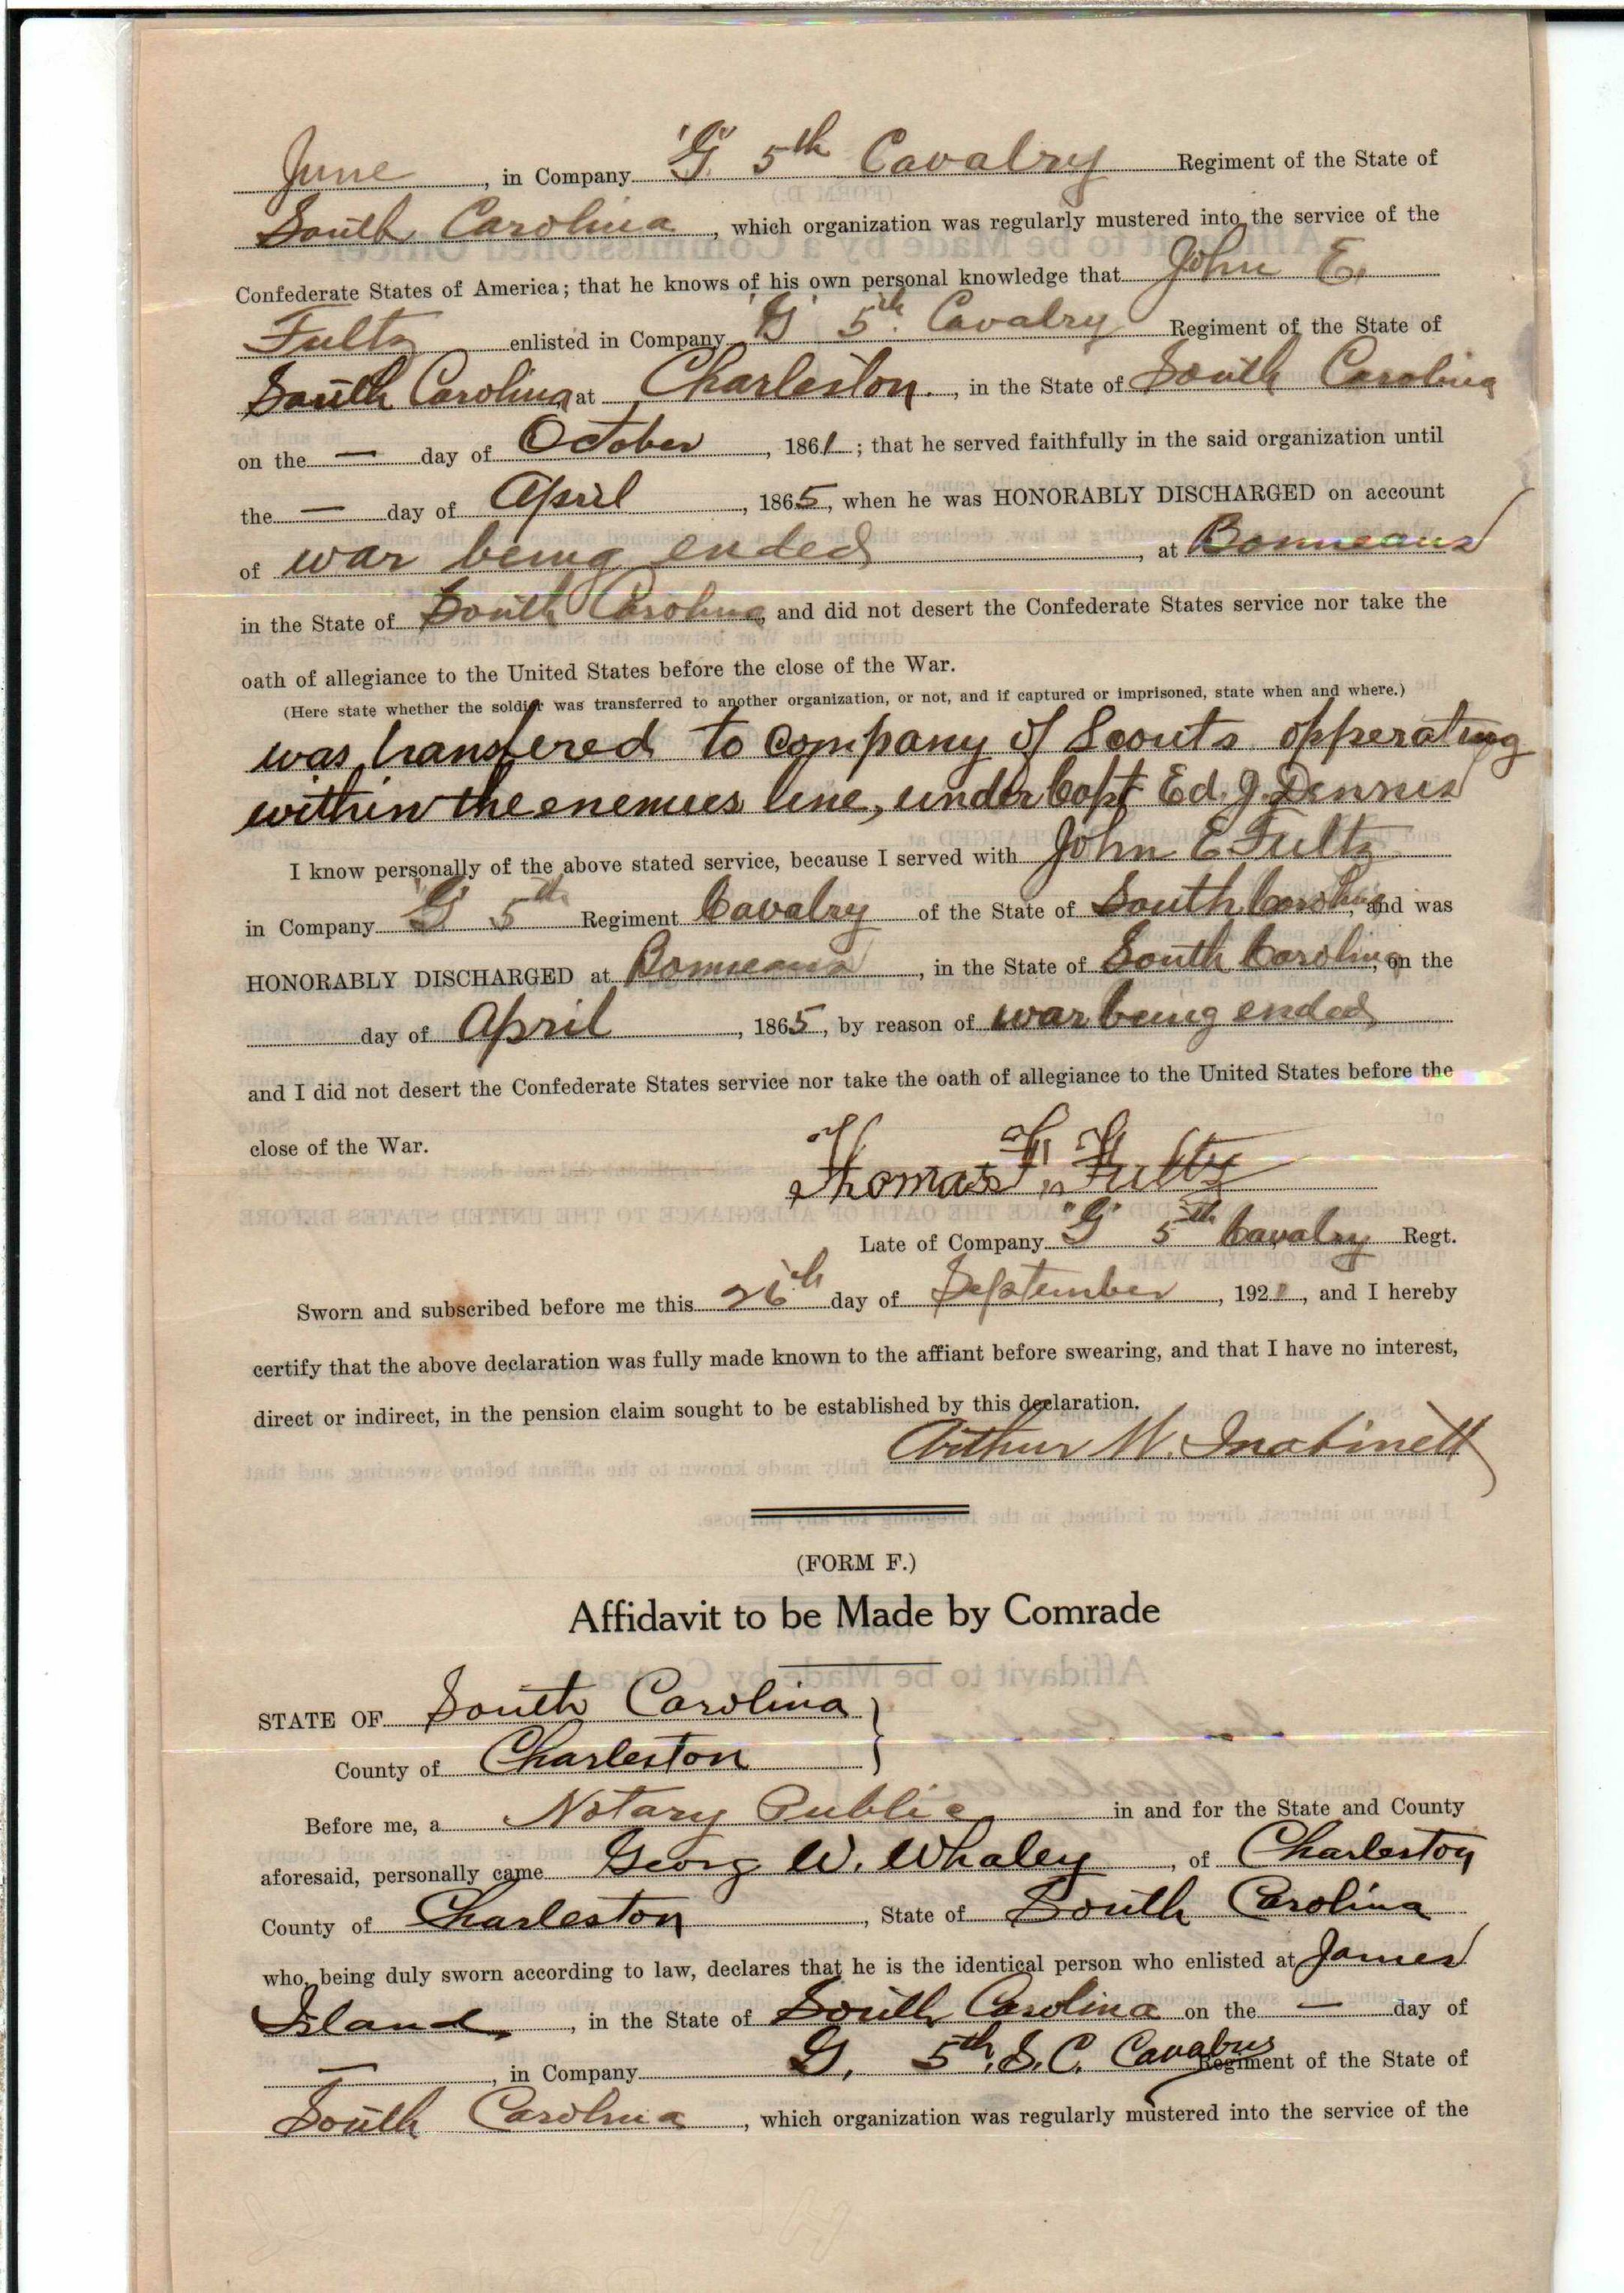 June, in Company "G" 5th Cavalry Regiment of the State of
South Carolina, which organization was regularly mustered into the service of the
Confederate States of America; that he knows of his own personal knowledge that John E.
Fultz enlisted in Company "G" 5th Cavalry Regiment of the State of
South Carolina at Charleston, in the State of South Carolina
on the — day of October, 1861; that he served faithfully in the said organization until
the — day of April, 1865, when he was HONORABLY DISCHARGED on account
of war being ended, at Bonneaus
in the State of South Carolina, and did not desert the Confederate States service nor take the
oath of allegiance to the United States before the close of the War.
(Here state whether the soldier was transferred to another organization, or not, and if captured or imprisoned, state when and where.)
was transfered to company of Scouts opperating
within the enemies line, under Capt Ed. J. Dennis
I know personally of the above stated service, because I served with John E Fultz
in Company "G" 5th Regiment Cavalry of the State of South Carolina, and was
HONORABLY DISCHARGED at Bonneaus, in the State of South Carolina, on the
day of April, 1865, by reason of war being ended
and I did not desert the Confederate States service nor take the oath of allegiance to the United States before the
close of the War.
Thomas F. Fultz
Late of Company "G" 5th Cavalry Regt.
Sworn and subscribed before me this 26th day of September, 1921, and I hereby
certify that the above declaration was fully made known to the affiant before swearing, and that I have no interest,
direct or indirect, in the pension claim sought to be established by this declaration.
Arthur W. Inabinett
(FORM F.)
Affidavit to be Made by Comrade
STATE OF South Carolina
County of Charleston
Before me, a Notary Public in and for the State and County
aforesaid, personally came Georg W. Whaley, of Charleston
County of Charleston, State of South Carolina
who, being duly sworn according to law, declares that he is the identical person who enlisted at James
Island, in the State of South Carolina on the — day of
—, in Company G, 5th, S.C. Cavalry Regiment of the State of
South Carolina, which organization was regularly mustered into the service of the